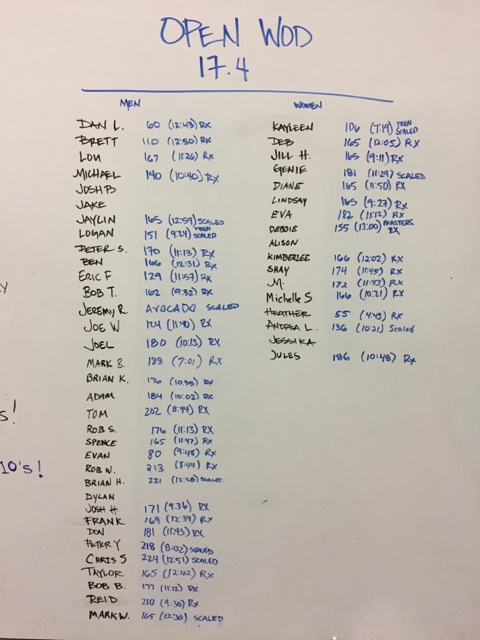 OPEN WOD
17.4
MEN
DAN L. 60 (12:43) RX
BRETT 110 (12:50) RX
LOU 167 (11:26) RX
MICHAEL 140 (10:40) RX
JOSH B
JAKE
JAYLIN 165 (12:59) SCALED
LOGAN 151 (9:24) TEEN SCALED
PETER S. 170 (11:13) RX
BEN 166 (12:31) RX
ERIC F 129 (11:57) RX
BOB T. 162 (9:32) RX
JEREMY R. AVOCADO SCALED
JOE W 124 (11:40) RX
JOEL 180 (10:13) RX
MARK B. 188 (7:01) RX
BRIAN K. 176 (10:38) RX
ADAM 184 (10:02) RX
TOM 202 (8:44) RX
ROB S. 176 (11:13) RX
SPENCE 165 (11:47) RX
EVAN 80 (9:48) RX
ROB W. 213 (8:44) RX
BRIAN H. 221 (12:58) SCALED
DYLAN
JOSH H 171 (9:36) RX
FRANK 169 (12:34) RX
DON 181 (11:43) RX
PETER Y 218 (8:02) SCALED
CHRIS S 224 (12:51) SCALED
TAYLOR 165 (12:42) RX
BOB B. 177 (11:12) RX
REID 210 (9:30) RX
MARK W. 165 (12:30) SCALED
WOMEN
KAYLEEN 106 (7:19) TEEN SCALED
DEB 165 (12:05) RX
JILL H. 165 (9:11) RX
GENIE 181 (11:29) SCALED
DIANE 165 (11:50) RX
LINDSAY 165 (9:27) RX
EVA 182 (11:12) RX
DEBBIE 155 (13:00) MASTERS RX
ALISON
KIMBERLEE 166 (12:02) RX
SHAY 174 (11:45) RX
M. 172 (11:43) RX
Michelle S 166 (10:21) RX
HEATHER 55 (4:43) RX
ANDREA L. 136 (10:21) Scaled
JESSIKA
JULES 186 (10:48) RX
Y
S!
10's!